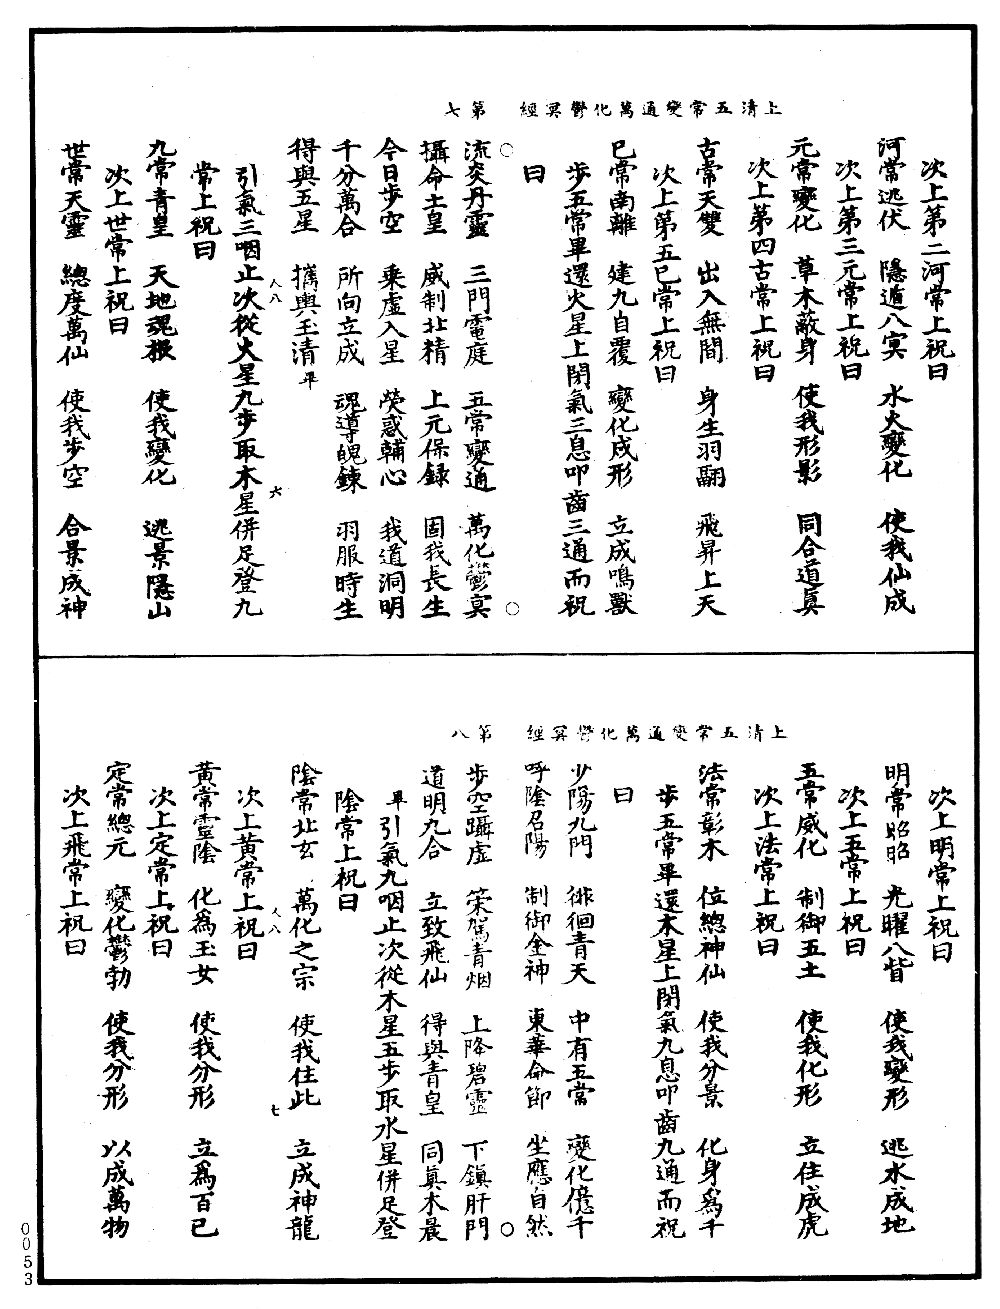 上清五常變通萬化鬱冥經　第七
次上第二河常上祝曰
河常逃伏　隱遁八冥　水火變化　使我仙成
次上第三元常上祝曰
元常變化　草木蔽身　使我形影　同合道真
次上第四古常上祝曰
古常天雙　出入無間　身生羽翮　飛昇上天
次上第五巳常上祝曰
巳常南離　建九自覆　變化成形　立成鳴獸
步五常畢還火星上閉氣三息叩齒三通而祝
曰
流炎丹靈　三門電庭　五常變通　萬化鬱冥
攝命土皇　威制北精　上元保録　固我長生
今日步空　乘虛入星　熒惑輔心　我道洞明
千分萬合　所向立成　魂導魄鍊　羽服時生
得與五星　攜輿玉清畢
人八　六
引氣三咽止次從火星九步取木星併足登九
常上祝曰
九常青皇　天地魂根　使我變化　逃景隱山
次上世常上祝曰
世常天靈　總度萬仙　使我步空　合景成神
上清五常變通萬化鬱冥經　第八
次上明常上祝曰
明常昭昭　光曜八眥　使我變形　逃水成地
次上五常上祝曰
五常威化　制御五土　使我化形　立住成虎
次上法常上祝曰
法常彰木　位總神仙　使我分景　化身為千
步五常畢還木星上閉氣九息叩齒九通而祝
曰
少陽九門　徘徊青天　中有五常　變化億千
呼陰召陽　制御金神　東華命節　坐應自然
步空躡虛　策駕青烟　上降碧靈　下鎮肝門
道明九合　立致飛仙　得與青皇　同真木晨
畢引氣九咽止次從木星五步取水星併足登
陰常上祝曰
陰常北玄　萬化之宗　使我住此　立成神龍
人八　七
次上黃常上祝曰
黃常靈陰　化為玉女　使我分形　立為百已
次上定常上祝曰
定常總元　變化鬱勃　使我分形　以成萬物
次上飛常上祝曰
0053